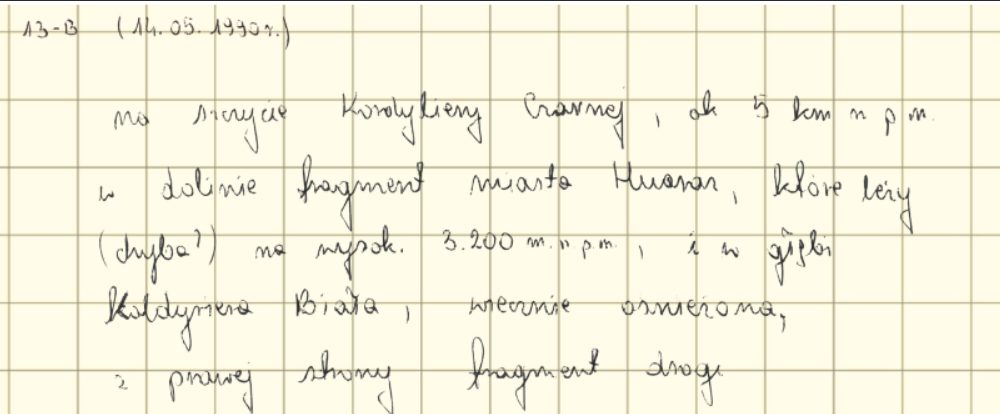 13-B (14.05.1990r.)
na szczycie Kordyliery Czarnej, ok 5 km n p m.
w dolinie fragment miasta Huaraz, które leży
(chyba?) na wysok. 3.200 m. n p.m., i w głębi
Kordyliera Biała, wiecznie ośnieżona,
z prawej strony fragment drogi